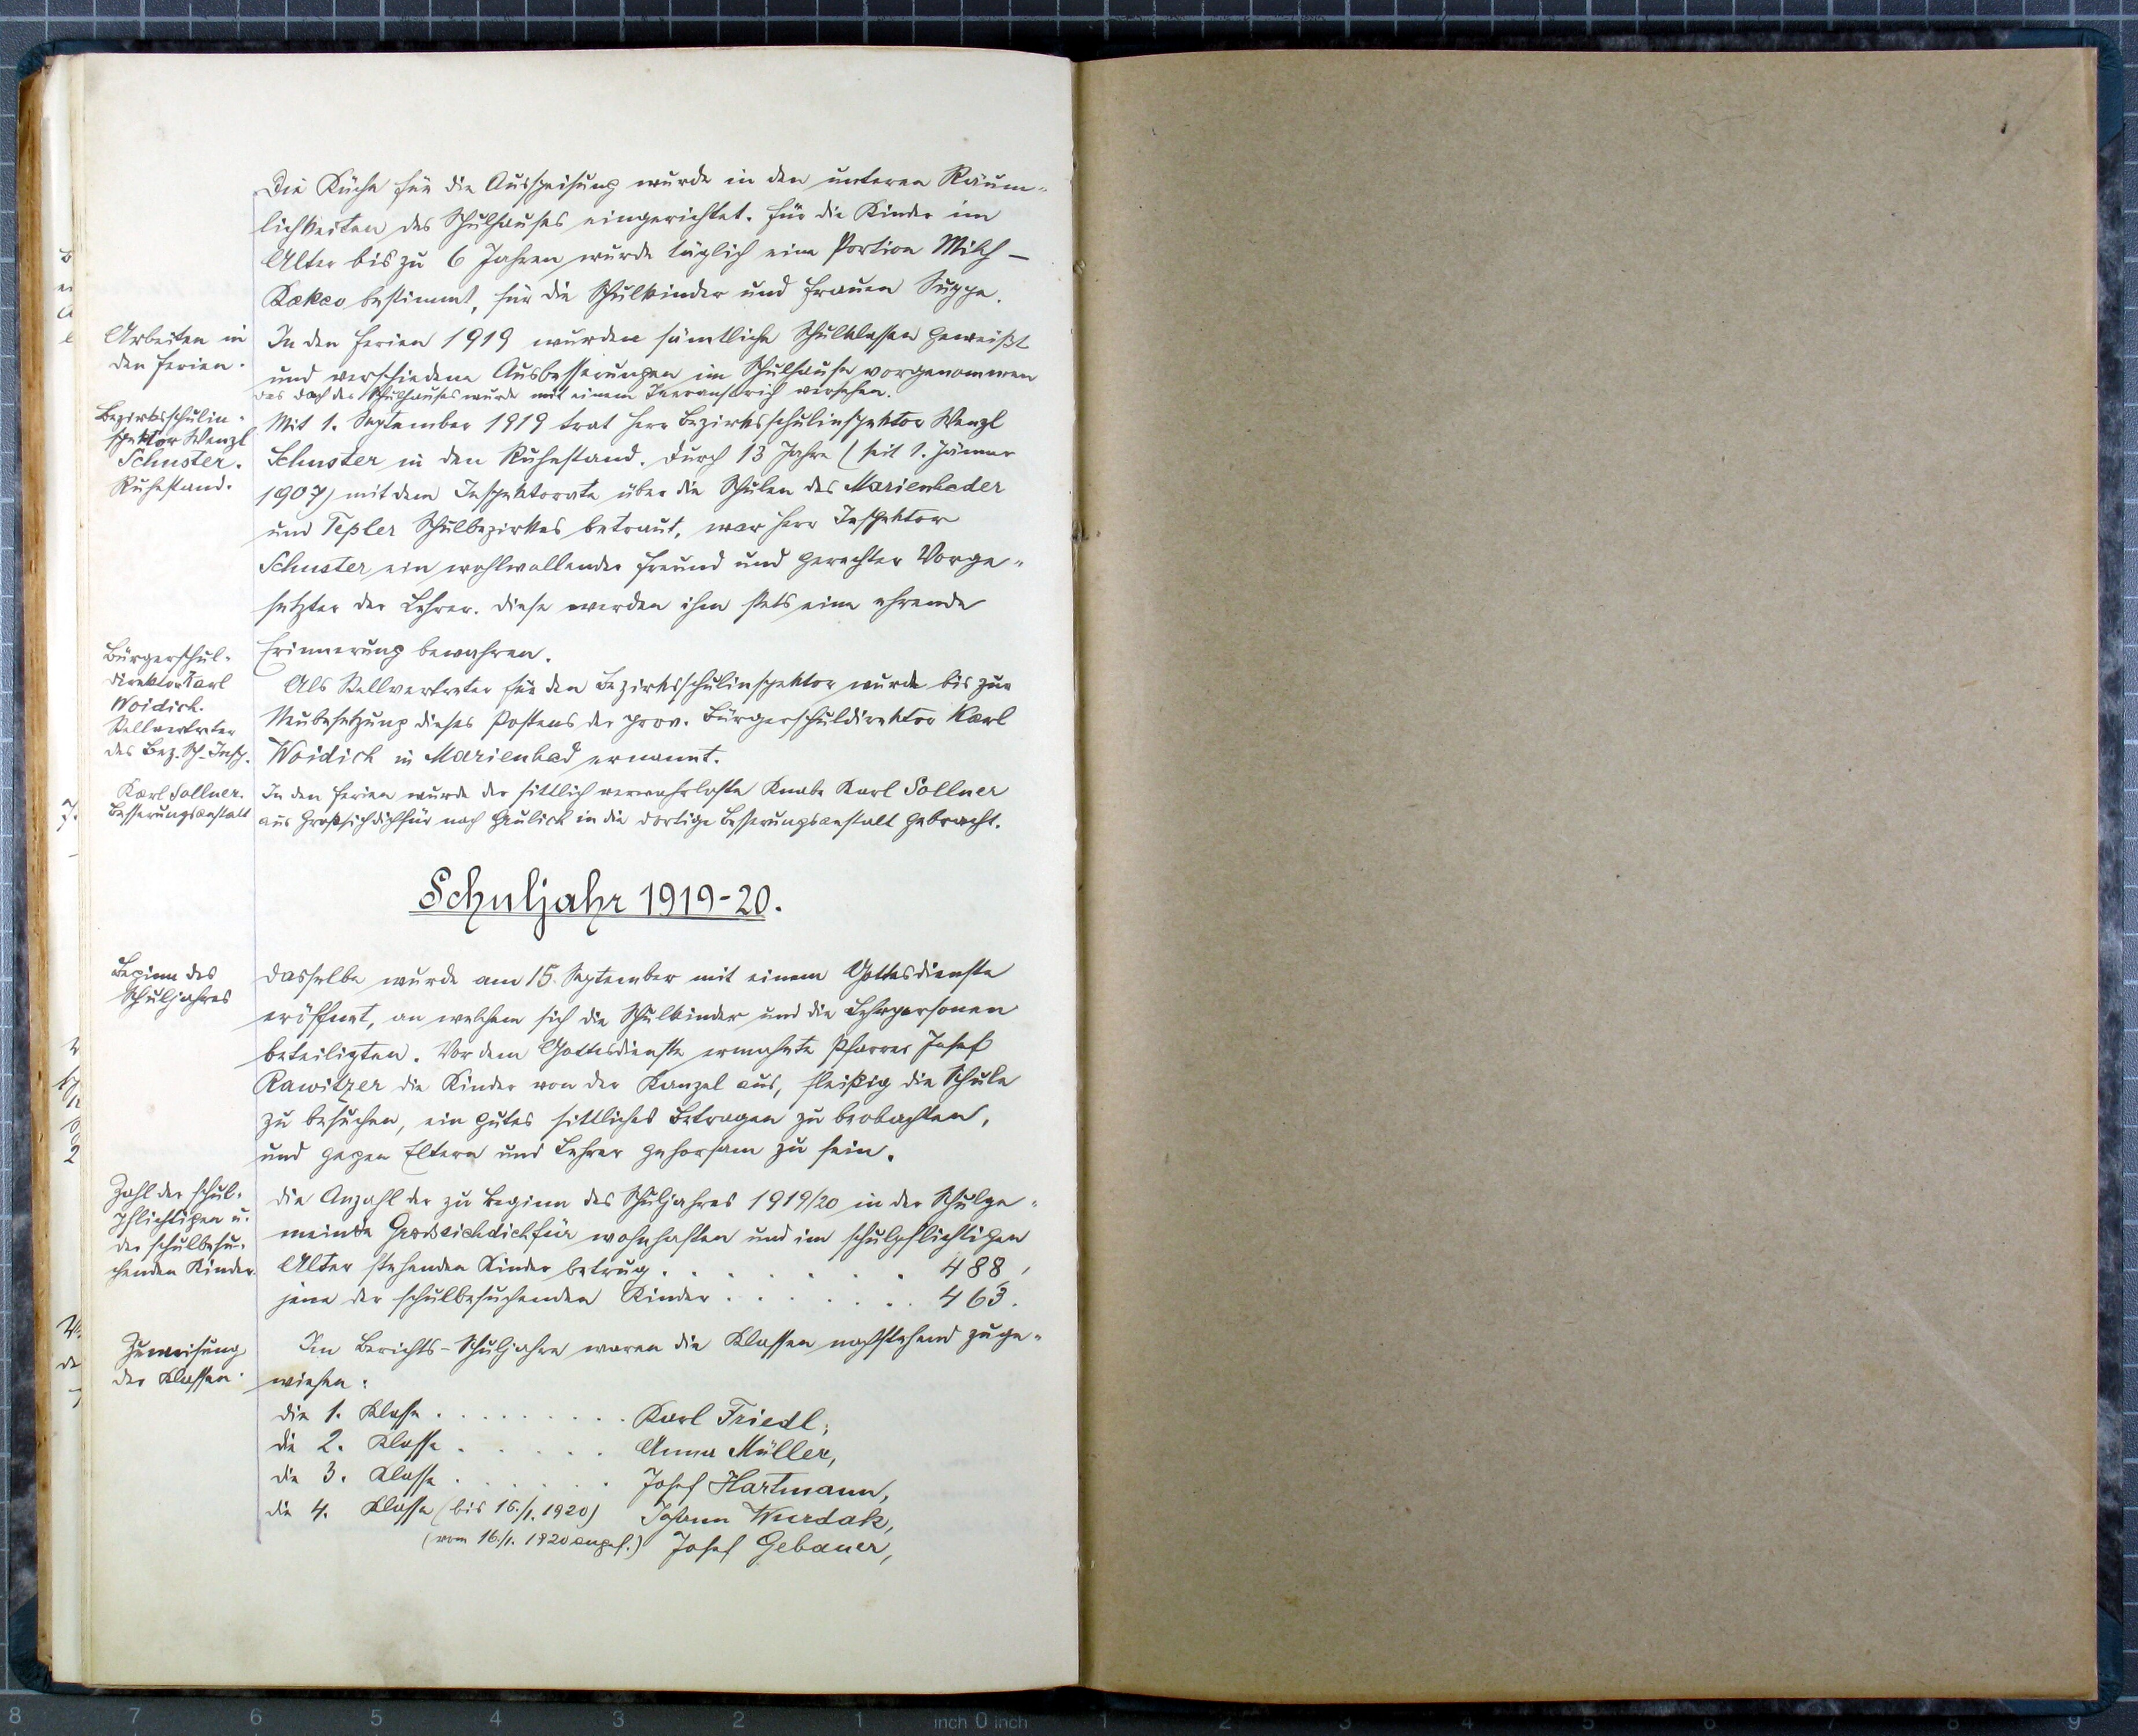 Die Küche für die Ausspeisung wurde in den unteren Räum-
lichkeiten des Schulhauses eingerichtet. Für die Kinder im
Alter bis zu 6 Jahren wurde täglich eine Portion Milch-
Kakao bestimmt, für die Schulkinder und Frauen Suppe.
Arbeiten in
den Ferien.
In den Ferien 1919 wurden sämtliche Schulklassen geweißt
und verschiedene Ausbesserungen im Schulhause vorgenommen
das Dach des Schulhauses wurde mit einem Teeranstrich versehen.
Bezirksschulin-
spektor Wenzl
Schuster.
Ruhestand.
Mit 1. September 1919 trat Herr Bezirksschulinspektor Wenzl
Schuster in den Ruhestand. Durch 13 Jahre (seit 1. Jänner
1907) mit dem Inspektorate über die Schulen des Marienbader
und Tepler Schulbezirkes betraut, war Herr Inspektor
Schuster ein wohlwollender Freund und gerechter Vorge-
setzter der Lehrer. Diese werden ihm stets eine ehrende
Erinnerung bewahren.
Bürgerschul-
direktor Karl
Woidich.
Stellvertreter
des Bez. Sch.-Insp.
Als Stellvertreter für den Bezirksschulinspektor wurde bis zur
Neubesetzung dieses Postens der prov. Bürgerschuldirektor Karl
Woidich in Marienbad ernannt.
Karl Sollner.
Besserungsanstalt
In den Ferien wurde der sittlich verwahrloste Knabe Karl Sollner
aus Großsichdichfür nach Grulich in die dortige Besserungsanstalt gebracht.
Schuljahr 1919-20.
Beginn des
Schuljahres
Dasselbe wurde am 15. September mit einem Gottesdienste
eröffnet, an welchem sich die Schulkinder und die Lehrpersonen
beteiligten. Vor dem Gottesdienste ermahnte Pfarrer Josef
Rawitzer die Kinder von der Kanzel aus, fleißig die Schule
zu besuchen, ein gutes sittliches Betragen zu beobachten,
und gegen Eltern und Lehrer gehorsam zu sein.
Zahl der schul-
pflichtigen u.
der schulbesu-
chenden Kinder.
Die Anzahl der zu Beginn des Schuljahres 1919/20 in der Schulge-
meinde Grosssichdichfür wohnhaften und im schulpflichtigen
Alter stehenden Kinder betrug . . . . . . . 488,
jene der schulbesuchenden Kinder . . . . . . . 463.
Zuweisung
der Klassen.
Im Berichts-Schuljahre waren die Klassen nachstehend zuge-
wiesen:
die 1. Klasse . . . . . . . . . Karl Friedl,
die 2. Klasse . . . . . . Anna Müller,
die 3. Klasse . . . . . . Josef Hartmann,
die 4. Klasse (bis 15./1. 1920) Johann Wurdak,
(vom 16./1. 1920 angef.) Josef Gebauer,
8 7 6 5 4 3 2 1 inch 0 inch 1 2 3 4 5 6 7 8 9